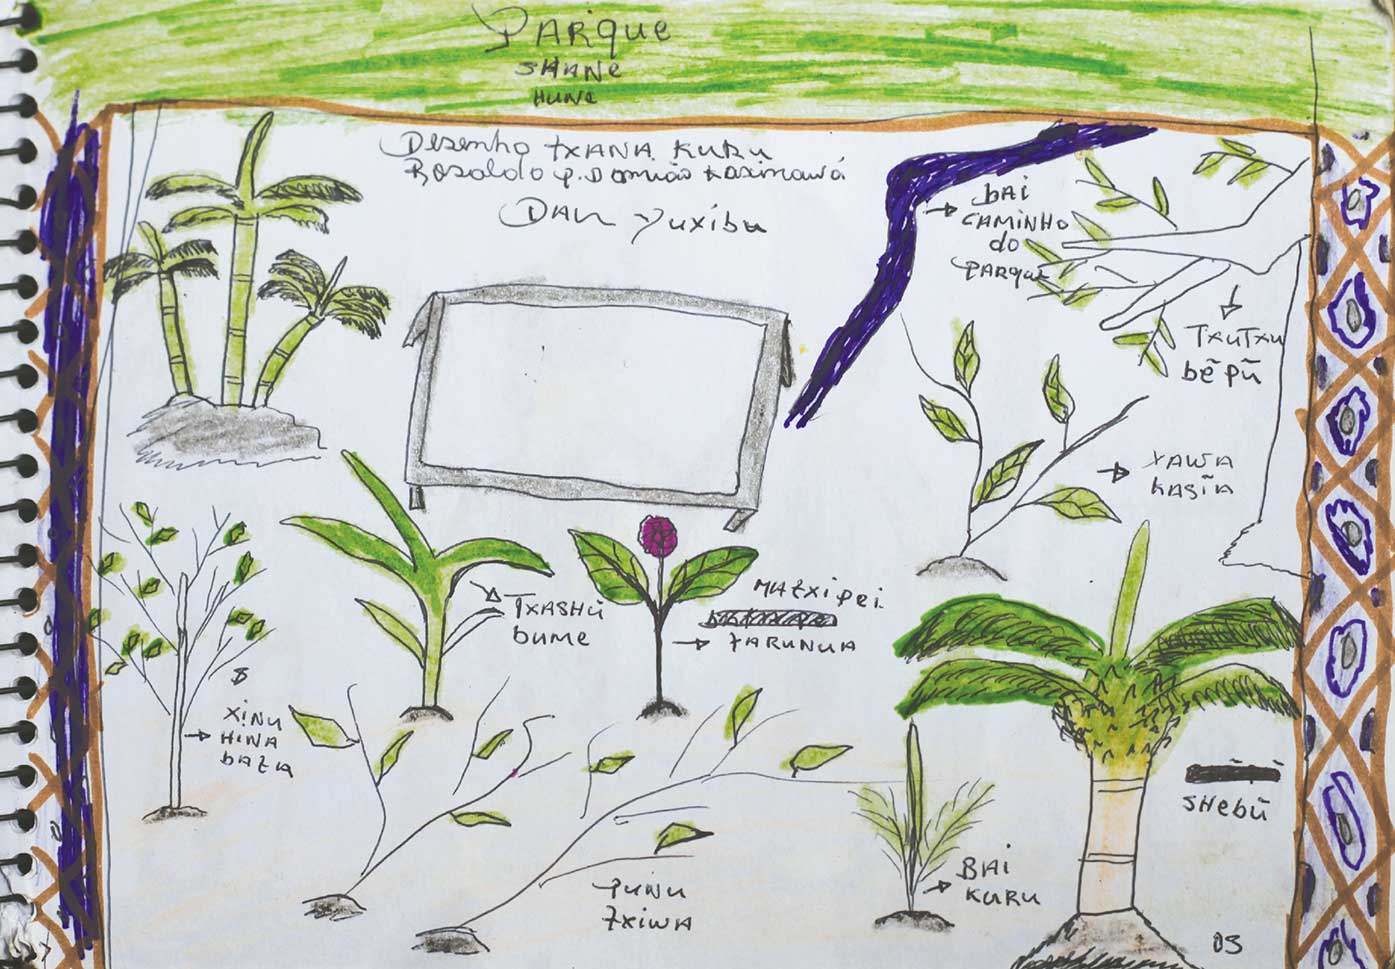 Parque
SHANE
HUNE
Desenho TXANA KURU
Rosaldo p. Damião Kaxinawá
DAU Yuxibu
BAI
CAMINHO
do
PARQUE
TXUTXU
bẽ pũ
XAWA
KASĨA
MATXI pei
TARUNUA
TXASHU
bUME
XINU
HINA
bATA
PUNU
TXIWA
BAI
KURU
SHEBŨ
05